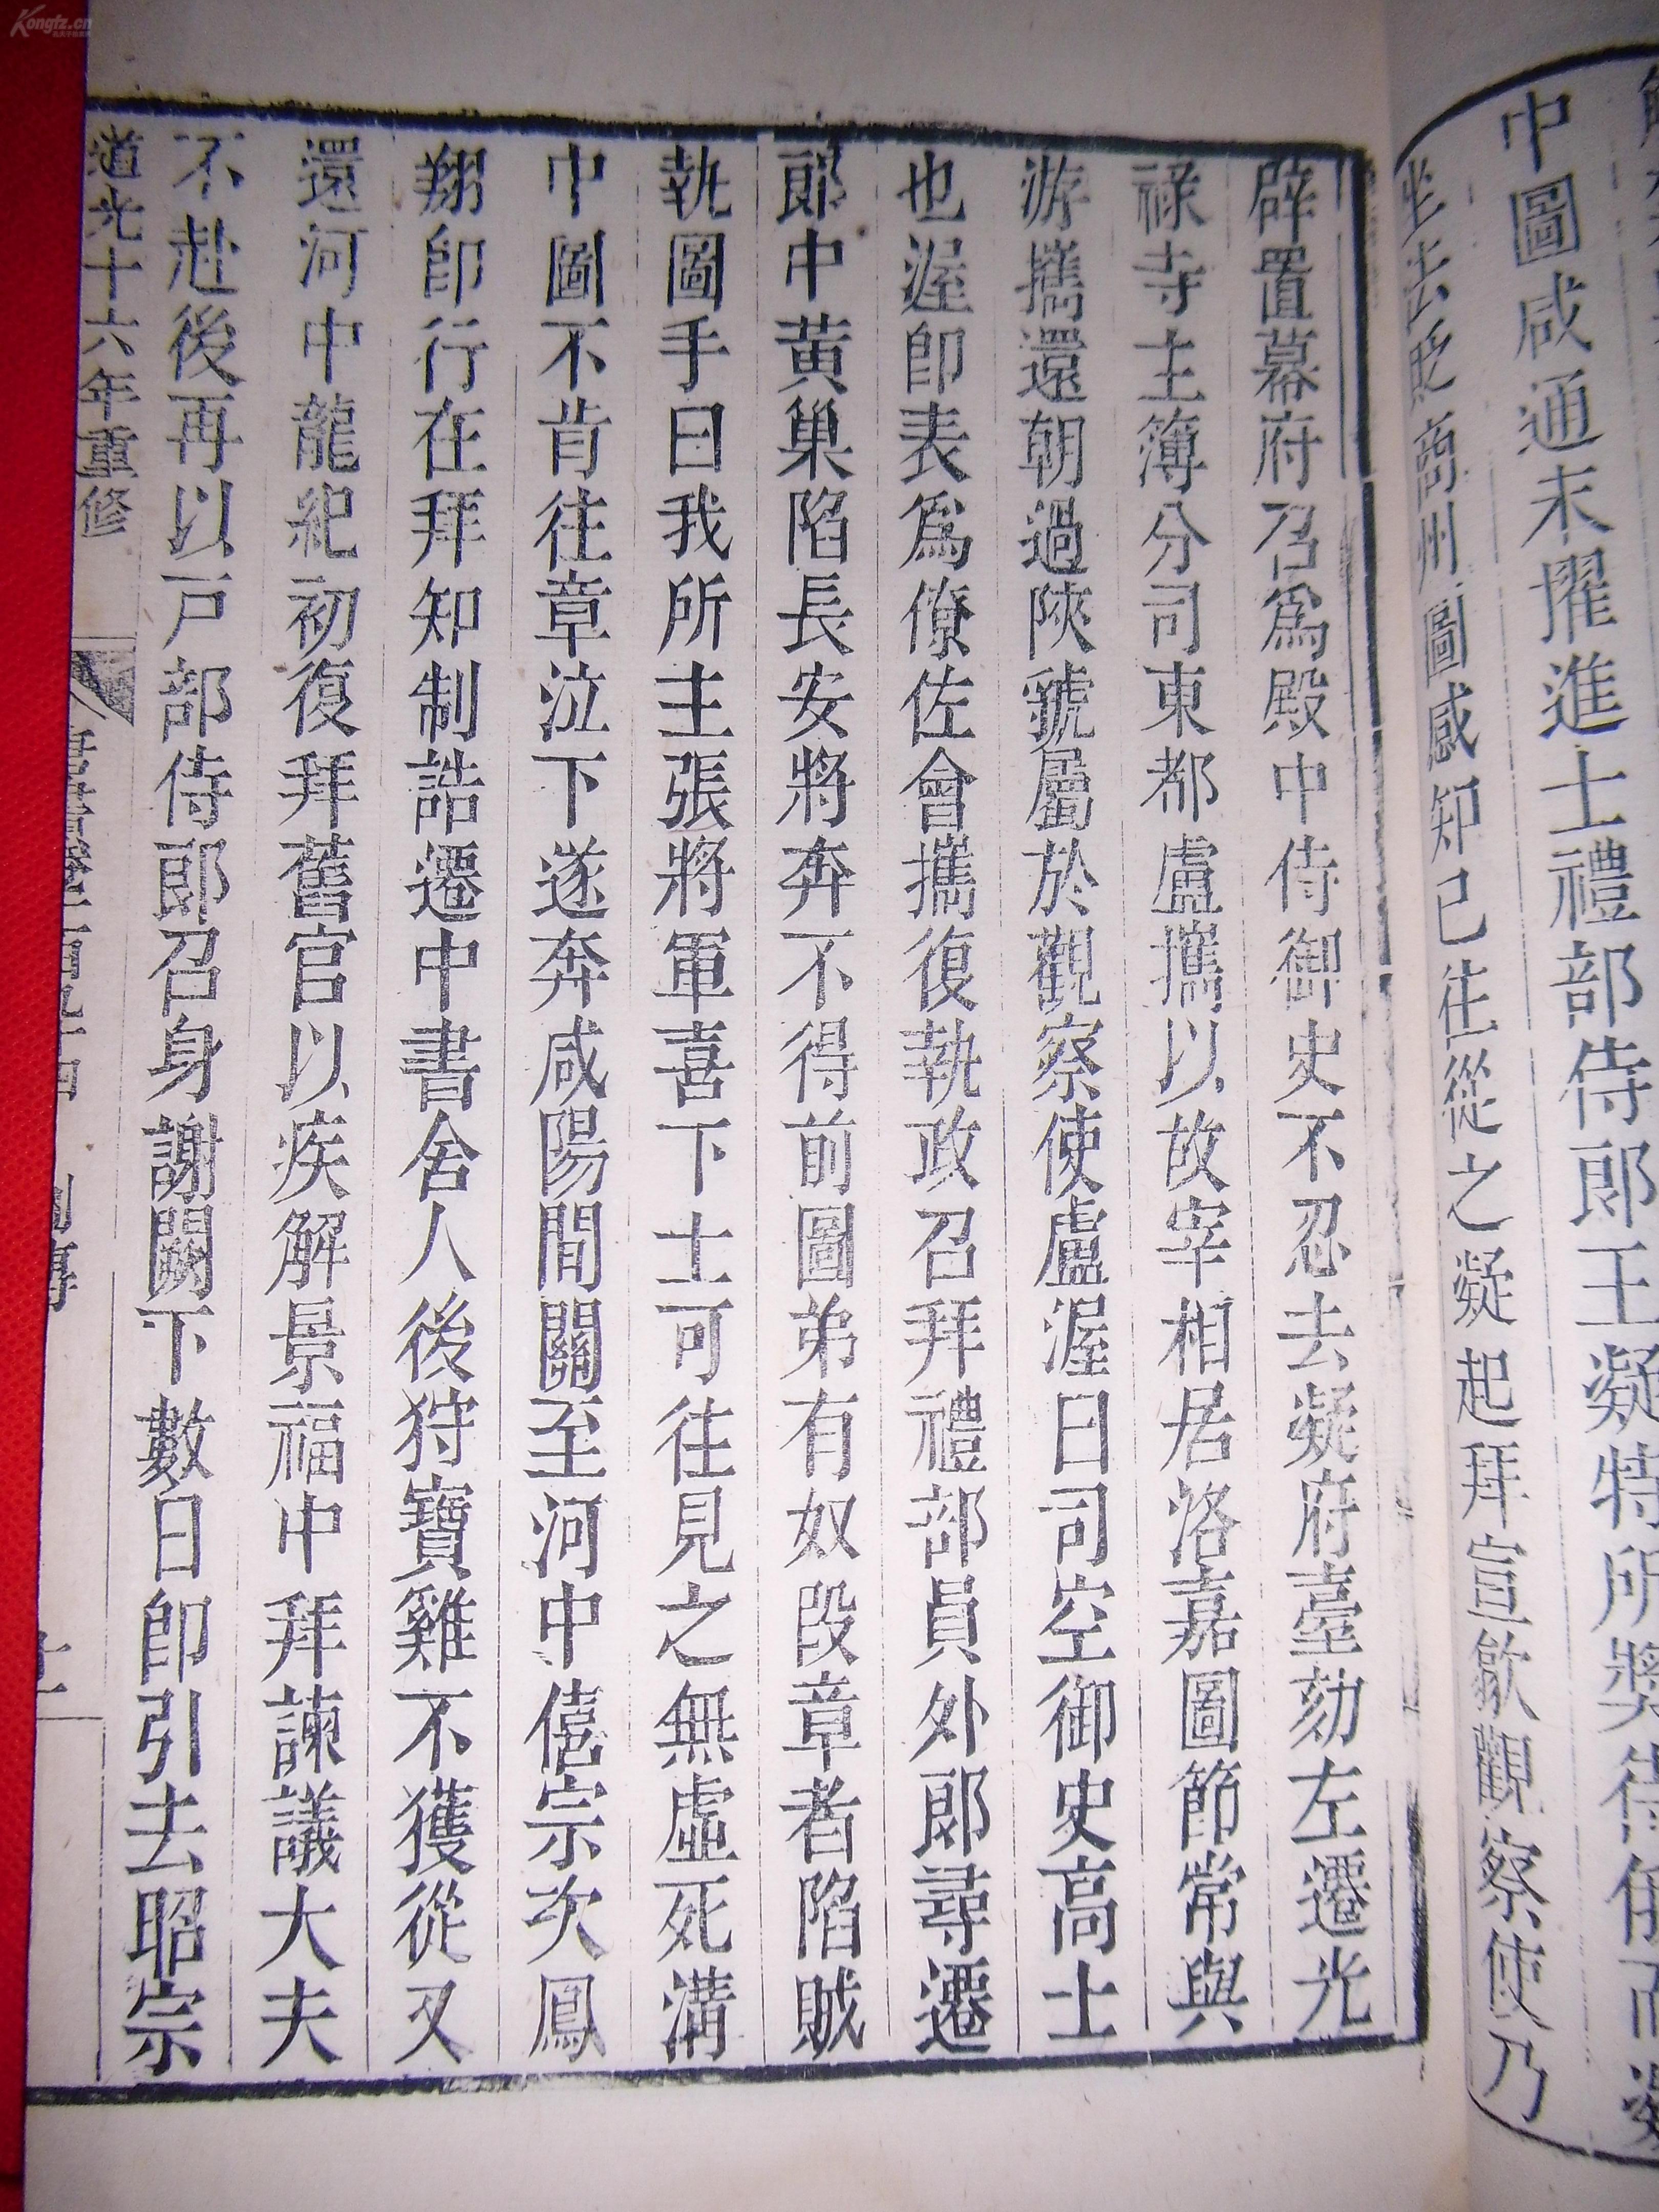 中圖咸通末擢進士禮部侍郎王凝特所獎待俄而凝
坐法貶商州圖感知己往從之凝起拜宣歙觀察使乃
辟置幕府召爲殿中侍御史不忍去凝府臺劾左遷光
祿寺主簿分司東都盧攜以故宰相居洛嘉圖節常與
游攜還朝過陝虢屬於觀察使盧渥曰司空御史高士
也渥即表爲僚佐會攜復執政召拜禮部員外郎尋遷
郎中黃巢陷長安將奔不得前圖弟有奴段章者陷賊
執圖手曰我所主張將軍喜下士可往見之無虛死溝
中圖不肯往章泣下遂奔咸陽間關至河中僖宗次鳳
翔即行在拜知制誥遷中書舍人後狩寶雞不獲從又
還河中龍紀初復拜舊官以疾解景福中拜諫議大夫
不赴後再以戶部侍郎召身謝闕下數日即引去昭宗
道光十六年重修
列傳
十一
Kongfz.cn